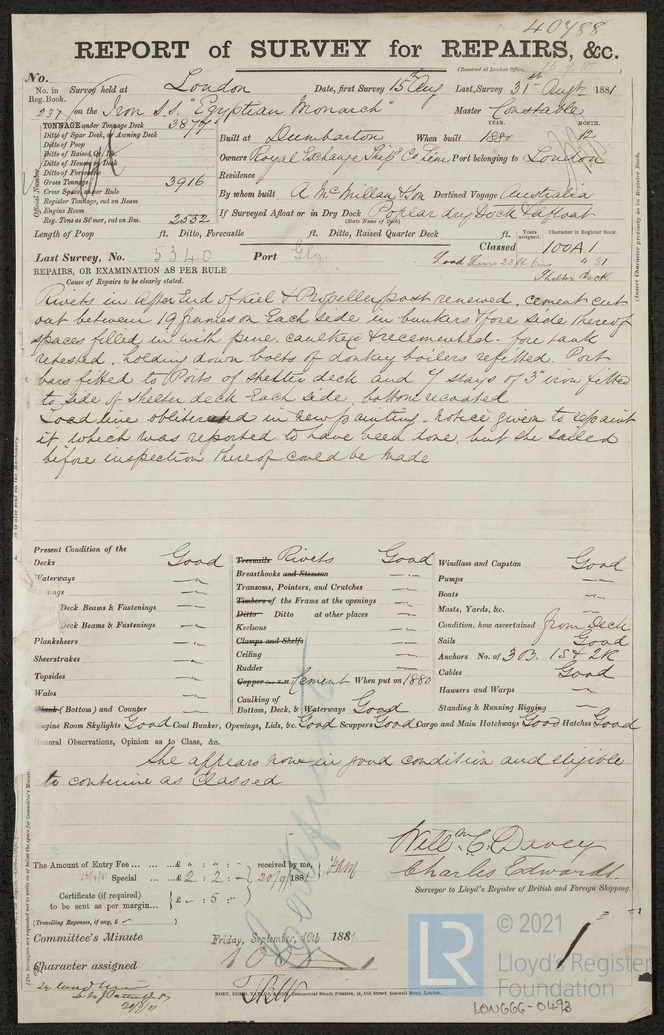 40788
REPORT of SURVEY for REPAIRS, &c.
(Received at London Office,
No.
No. in Reg. Book. Survey held at London Date, first Survey 15th Aug Last Survey 31st Augt 1881
237 on the Iron S.S. "Egyptian Monarch" Master Constable
TONNAGE under Tonnage Deck 3877
Ditto of Spar Deck, or Awning Deck
Ditto of Poop
Ditto of Raised Qr. Dk.
Ditto of Houses on Deck
Ditto of Forecastle
Gross Tonnage 3916
Crew Space, as per Rule
Register Tonnage, cut on Beam
Engine Room
Reg. Tons as St'mer, cut on Bm. 2532
Official Number
YEAR. MONTH.
Built at Dumbarton When built 1880 12
Owners Royal Exchange Ship Co Lim Port belonging to London
Residence
By whom built A McMillan & Son Destined Voyage Australia
If Surveyed Afloat or in Dry Dock Poplar dry Dock & afloat
(State Name of Dock)
Length of Poop ft. Ditto, Forecastle ft. Ditto, Raised Quarter Deck ft.
Years assigned. Character in Register Book.
Classed 100A1
Last Survey, No. 5340 Port Gls.
Load Line 23 ft " 81
Shelter Deck
(Insert Character precisely as in Register Book.
REPAIRS, OR EXAMINATION AS PER RULE
Cause of Repairs to be clearly stated.
Rivets in After End of Keel & Propellerpost renewed, cement cut
out between 19 frames on Each side in bunkers & fore side thereof
spaces filled in with pine, caulked & recemented. fore tank
retested, holding down bolts of donkey boilers refitted. Port
bars fitted to Ports of shelter deck and 7 stays of 3" iron fitted
to side of shelter deck Each side, bottom recoated
Load line obliterated in new painting. notice given to repaint
it which was reported to have been done, but she sailed
before inspection thereof could be made
Present Condition of the
Decks Good
Waterways "
Deck Beams & Fastenings "
Deck Beams & Fastenings "
Planksheers "
Sheerstrakes "
Topsides "
Wales "
Plank (Bottom) and Counter "
Treenails Rivets Good
Breasthooks and Stemson "
Transoms, Pointers, and Crutches "
Timbers of the Frame at the openings "
Ditto Ditto at other places "
Keelsons "
Clamps and Shelfs "
Ceiling "
Rudder "
Copper Cement When put on 1880
Caulking of Bottom, Deck, & Waterways Good
Windlass and Capstan Good
Pumps "
Boats "
Masts, Yards, &c. "
Condition, how ascertained from Deck
Sails Good
Anchors No. of 3 B. 1 S & 2 K
Cables Good
Hawsers and Warps "
Standing & Running Rigging "
Engine Room Skylights Good Coal Bunker, Openings, Lids, &c. Good Scuppers Good Cargo and Main Hatchways Good Hatches Good
General Observations, Opinion as to Class, &c.
She appears now in good condition and eligible
to continue as Classed
Willm C. Davey
Charles Edwards.
Surveyor to Lloyd's Register of British and Foreign Shipping.
The Amount of Entry Fee £ " : " : received by me,
Special £ 2 : 2 : - 20/9/1881
Certificate (if required) to be sent as per margin £ - : 5 : -
(Travelling Expenses, if any, £
Certificate
Committee's Minute Friday, September 16th 1881.
Character assigned 100A1
MORT, RIGHT, TAYLOR & CO., Commercial Steam Printers, 19, Old Street, Goswell Road, London.
LR
© 2021
Lloyd's Register
Foundation
LON666-0493